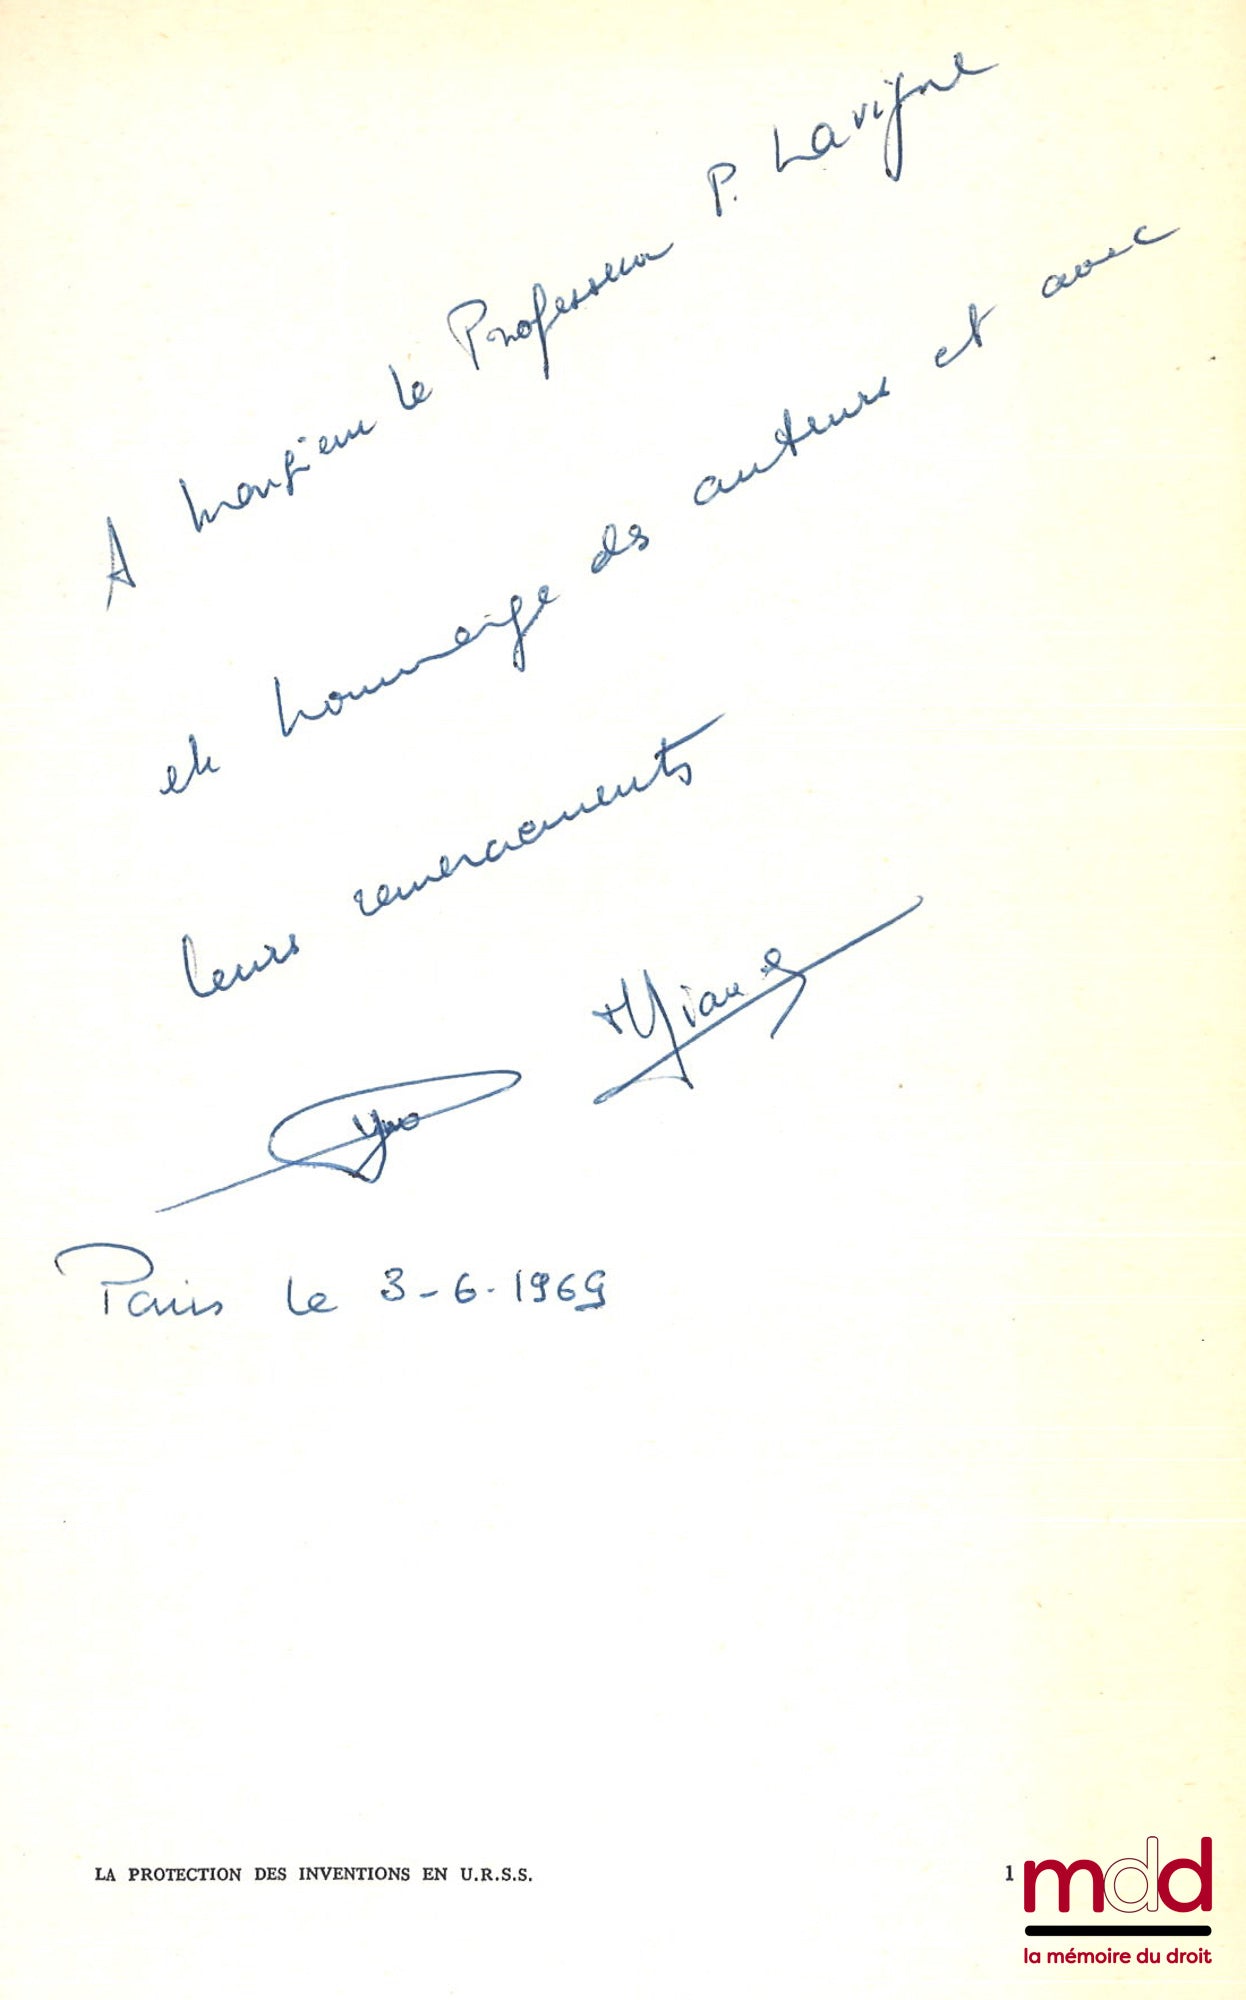 A Monsieur le Professeur P. Lavigne
en hommage des auteurs et avec
leurs remerciements
Paris le 3-6-1969
LA PROTECTION DES INVENTIONS EN U.R.S.S.
1
mdd
la mémoire du droit